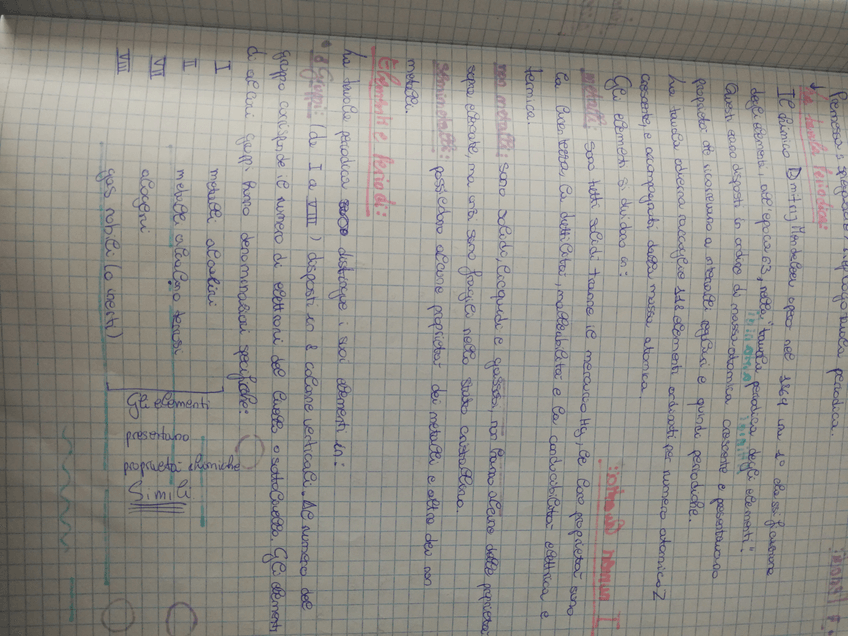 Premessa e spiegazione / riepilogo tavola periodica.
La tavola Periodica:
Il chimico Dmitrij Mendeleev operò nel 1869 una 1° classificazione
degli elementi, all'epoca 63, nella "tavola periodica degli elementi".
Questi erano disposti in ordine di massa atomica crescente e presentavano
proprietà che ricorrevano a intervalli regolari e quindi periodiche.
La tavola odierna raccoglie 118 elementi ordinati per numero atomico Z
crescente, e accompagnati dalla massa atomica.
Gli elementi si dividono in:
metalli: sono tutti solidi tranne il mercurio Hg, le loro proprietà sono
la lucentezza, la duttilità, malleabilità e la conducibilità elettrica e
termica.
non metalli: sono solidi, liquidi e gassosi, non hanno alcuna delle proprietà
sopra elencate, ma una sono fragili nello stato cristallino.
semimetalli: possiedono alcune proprietà dei metalli e altre dei non
metalli.
Elementi e Periodi:
La tavola periodica distingue i suoi elementi in:
• 8 Gruppi (da I a VIII) disposti in 8 colonne verticali. Il numero del
gruppo corrisponde il numero di elettroni del livello o sottolivello. Gli elementi
di alcuni gruppi hanno denominazioni specifiche:
I metalli alcalini
II metalli alcalino terrosi
VII alogeni
VIII gas nobili (o inerti)
Gli elementi
presentano
proprietà chimiche
Simili